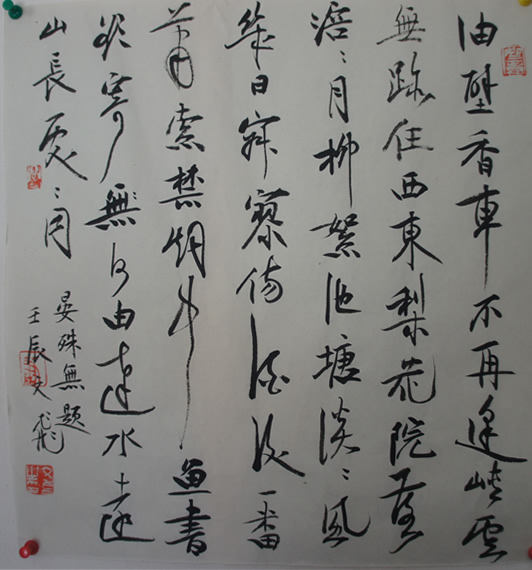 油壁香車不再逢峽雲
無跡任西東梨花院落
溶〻月柳絮池塘淡〻風
幾日寂寥傷酒後一番
蕭索禁煙中魚書
欲寄無何由達水遠
山長處〻同
晏殊無題
壬辰文飛